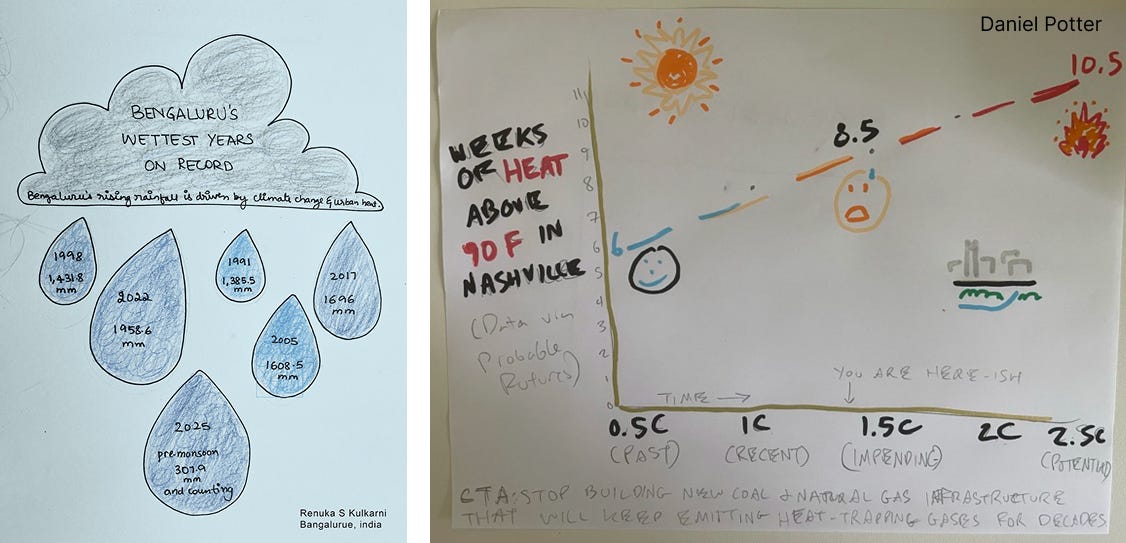 BENGALURU'S
WETTEST YEARS
ON RECORD
Bengaluru's rising rainfall is driven by climate change & urban heat.
1998
1,431.8
mm
2022
1958.6
mm
1991
1,385.5
mm
2017
1696
mm
2005
1608.5
mm
2025
pre-monsoon
307.9
mm
and counting
Renuka S Kulkarni
Bangalurue, india
Daniel Potter
WEEKS
OF HEAT
ABOVE
90 F IN
NASHVILLE
(Data via
Probable
Futures)
11
10
9
8
7
6
5
4
3
2
1
0
6
8.5
10.5
TIME →
YOU ARE HERE-ISH
0.5C
(PAST)
1C
(RECENT)
1.5C
(IMPENDING)
2C
2.5C
(POTENTIAL)
CTA: STOP BUILDING NEW COAL & NATURAL GAS INFRASTRUCTURE
THAT WILL KEEP EMITTING HEAT-TRAPPING GASES FOR DECADES